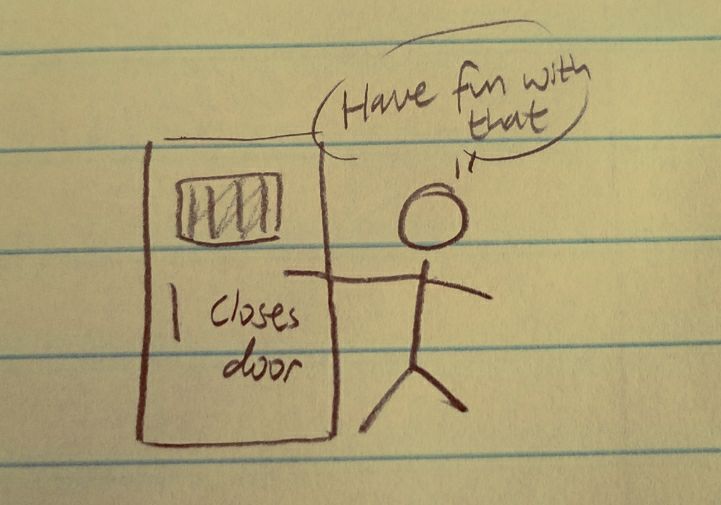 Have fun with
that
closes
door